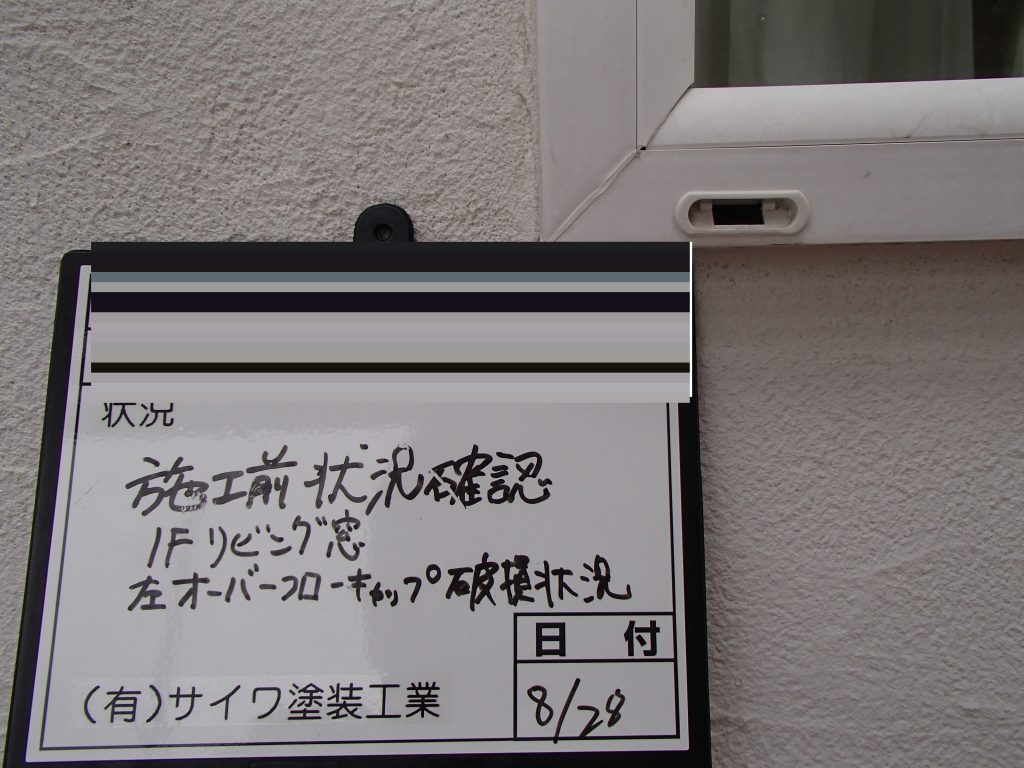 状況
施工前状況確認
1Fリビング窓
左オーバーフローキャップ破損状況
日付
8/28
(有)サイワ塗装工業